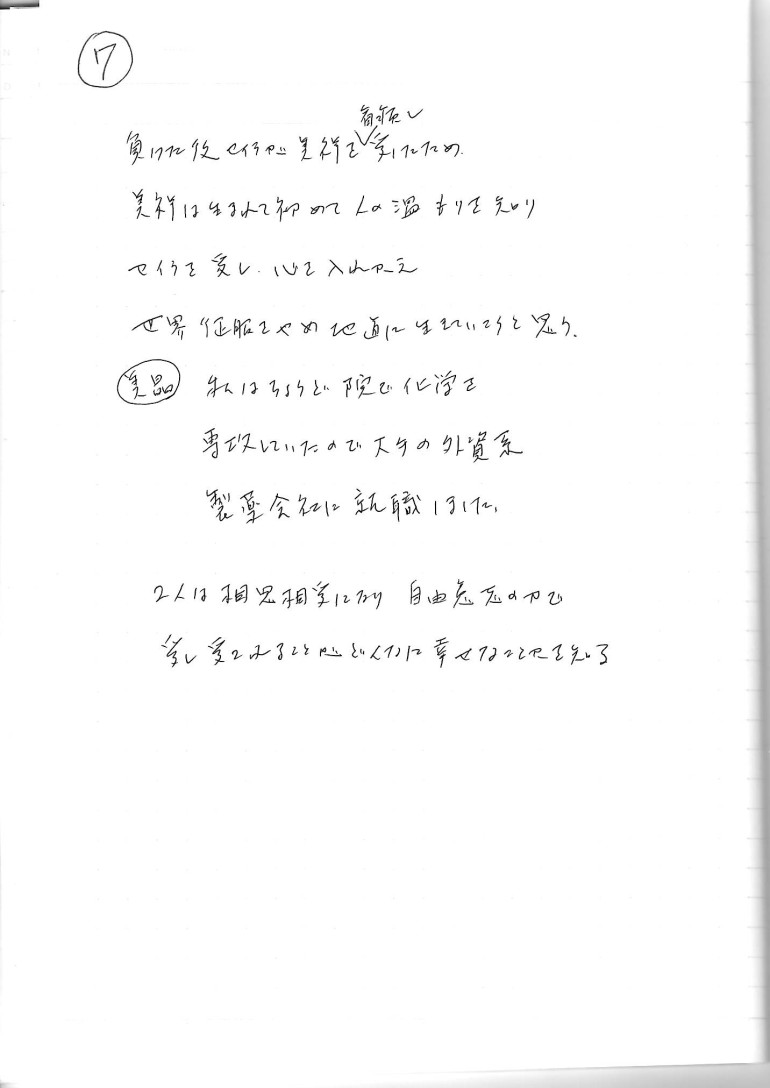 ⑦
負けた後 セイラが 美祥を 看病し 愛したため
美祥は生まれて初めて人の温もりを知り
セイラを愛し、心を入れかえ
世界征服をやめ地道に生きていこうと思う。
美晶 私はちょうど院で化学を
専攻していたので大手の外資系
製薬会社に就職しました。
2人は相思相愛になり 自由意志の力で
愛し愛されることがどんなに幸せなことかを知る